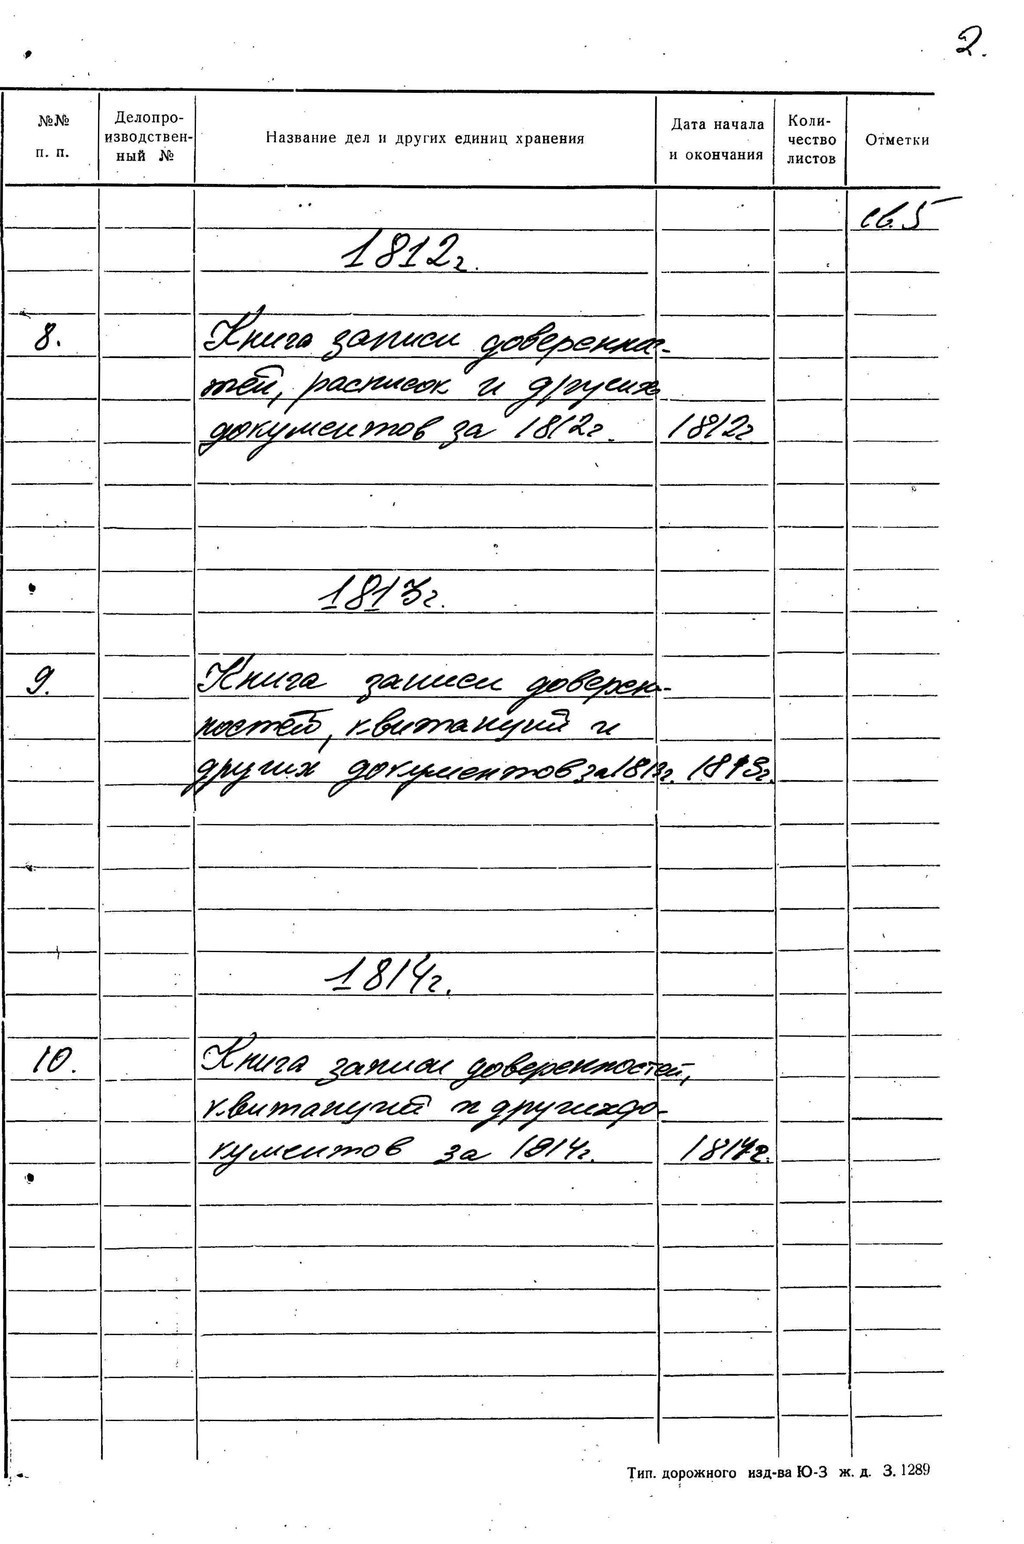 2.
№№ п. п.
Делопро-
изводствен-
ный №
Название дел и других единиц хранения
Дата начала
и окончания
Коли-
чество
листов
Отметки
св. 5
1812г.
8.
Книга записи доверенно-
стей, расписок и других
документов за 1812г. 1812г
1813г.
9.
Книга записи доверен-
ностей, квитанций и
других документов за 1813г. 1813г.
1814г.
10.
Книга записи доверенностей,
квитанций и других до-
кументов за 1814г. 1814г.
Тип. дорожного изд-ва Ю-З ж. д. З. 1289